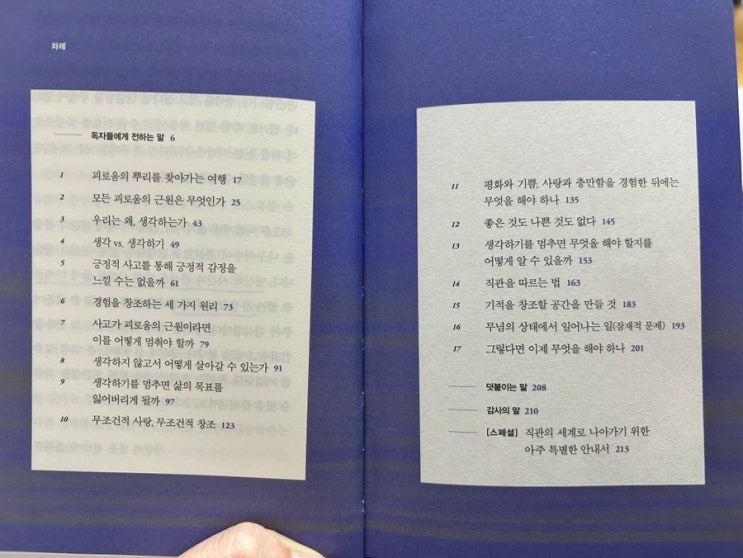 차례
독자들에게 전하는 말 6
1 괴로움의 뿌리를 찾아가는 여행 17
2 모든 괴로움의 근원은 무엇인가 25
3 우리는 왜, 생각하는가 43
4 생각 vs. 생각하기 49
5 긍정적 사고를 통해 긍정적 감정을
느낄 수는 없을까 61
6 경험을 창조하는 세 가지 원리 73
7 사고가 괴로움의 근원이라면
이를 어떻게 멈춰야 할까 79
8 생각하지 않고서 어떻게 살아갈 수 있는가 91
9 생각하기를 멈추면 삶의 목표를
잃어버리게 될까 97
10 무조건적 사랑, 무조건적 창조 123
11 평화와 기쁨, 사랑과 충만함을 경험한 뒤에는
무엇을 해야 하나 135
12 좋은 것도 나쁜 것도 없다 145
13 생각하기를 멈추면 무엇을 해야 할지를
어떻게 알 수 있을까 153
14 직관을 따르는 법 163
15 기적을 창조할 공간을 만들 것 183
16 무념의 상태에서 일어나는 일(잠재적 문제) 193
17 그렇다면 이제 무엇을 해야 하나 201
덧붙이는 말 208
감사의 말 210
[스페셜] 직관의 세계로 나아가기 위한
아주 특별한 안내서 213